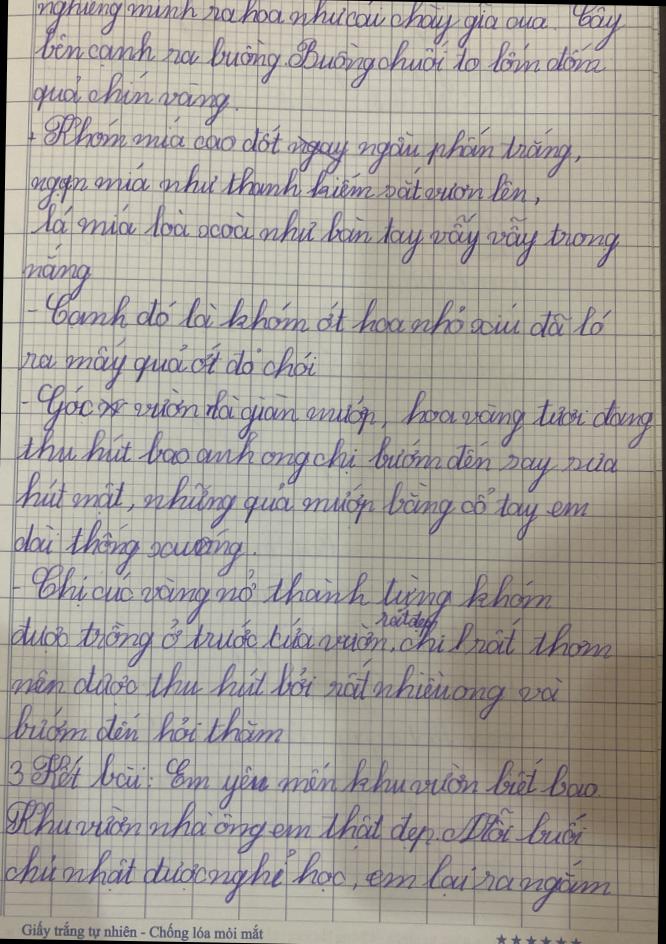 nghiêng mình ra hoa như cái chày giã cua. Cây
bên cạnh ra buồng. Buồng chuối to lốm đốm
quả chín vàng.
+ Khóm mía cao đốt ngay ngâu phấn trắng,
ngọn mía như thanh kiếm sắt vươn lên,
lá mía loà xoà như bàn tay vẫy vẫy trong
nắng
- Cạnh đó là khóm ớt hoa nhỏ xíu đã ló
ra mấy quả ớt đỏ chói
- Góc vườn là giàn mướp, hoa vàng tươi đang
thu hút bao anh ong chị bướm đến say sưa
hút mật, những quả mướp bằng cổ tay em
dài thõng xuống.
- Chị cúc vàng nở thành từng khóm
được trồng ở trước cửa vườn, rất đẹp chị rất thơm
nên được thu hút bởi rất nhiều ong và
bướm đến hỏi thăm
3 Kết bài: Em yêu mến khu vườn biết bao.
Khu vườn nhà ông em thật đẹp. Mỗi buổi
chủ nhật được nghỉ học, em lại ra ngắm
Giấy trắng tự nhiên - Chống lóa mỏi mắt